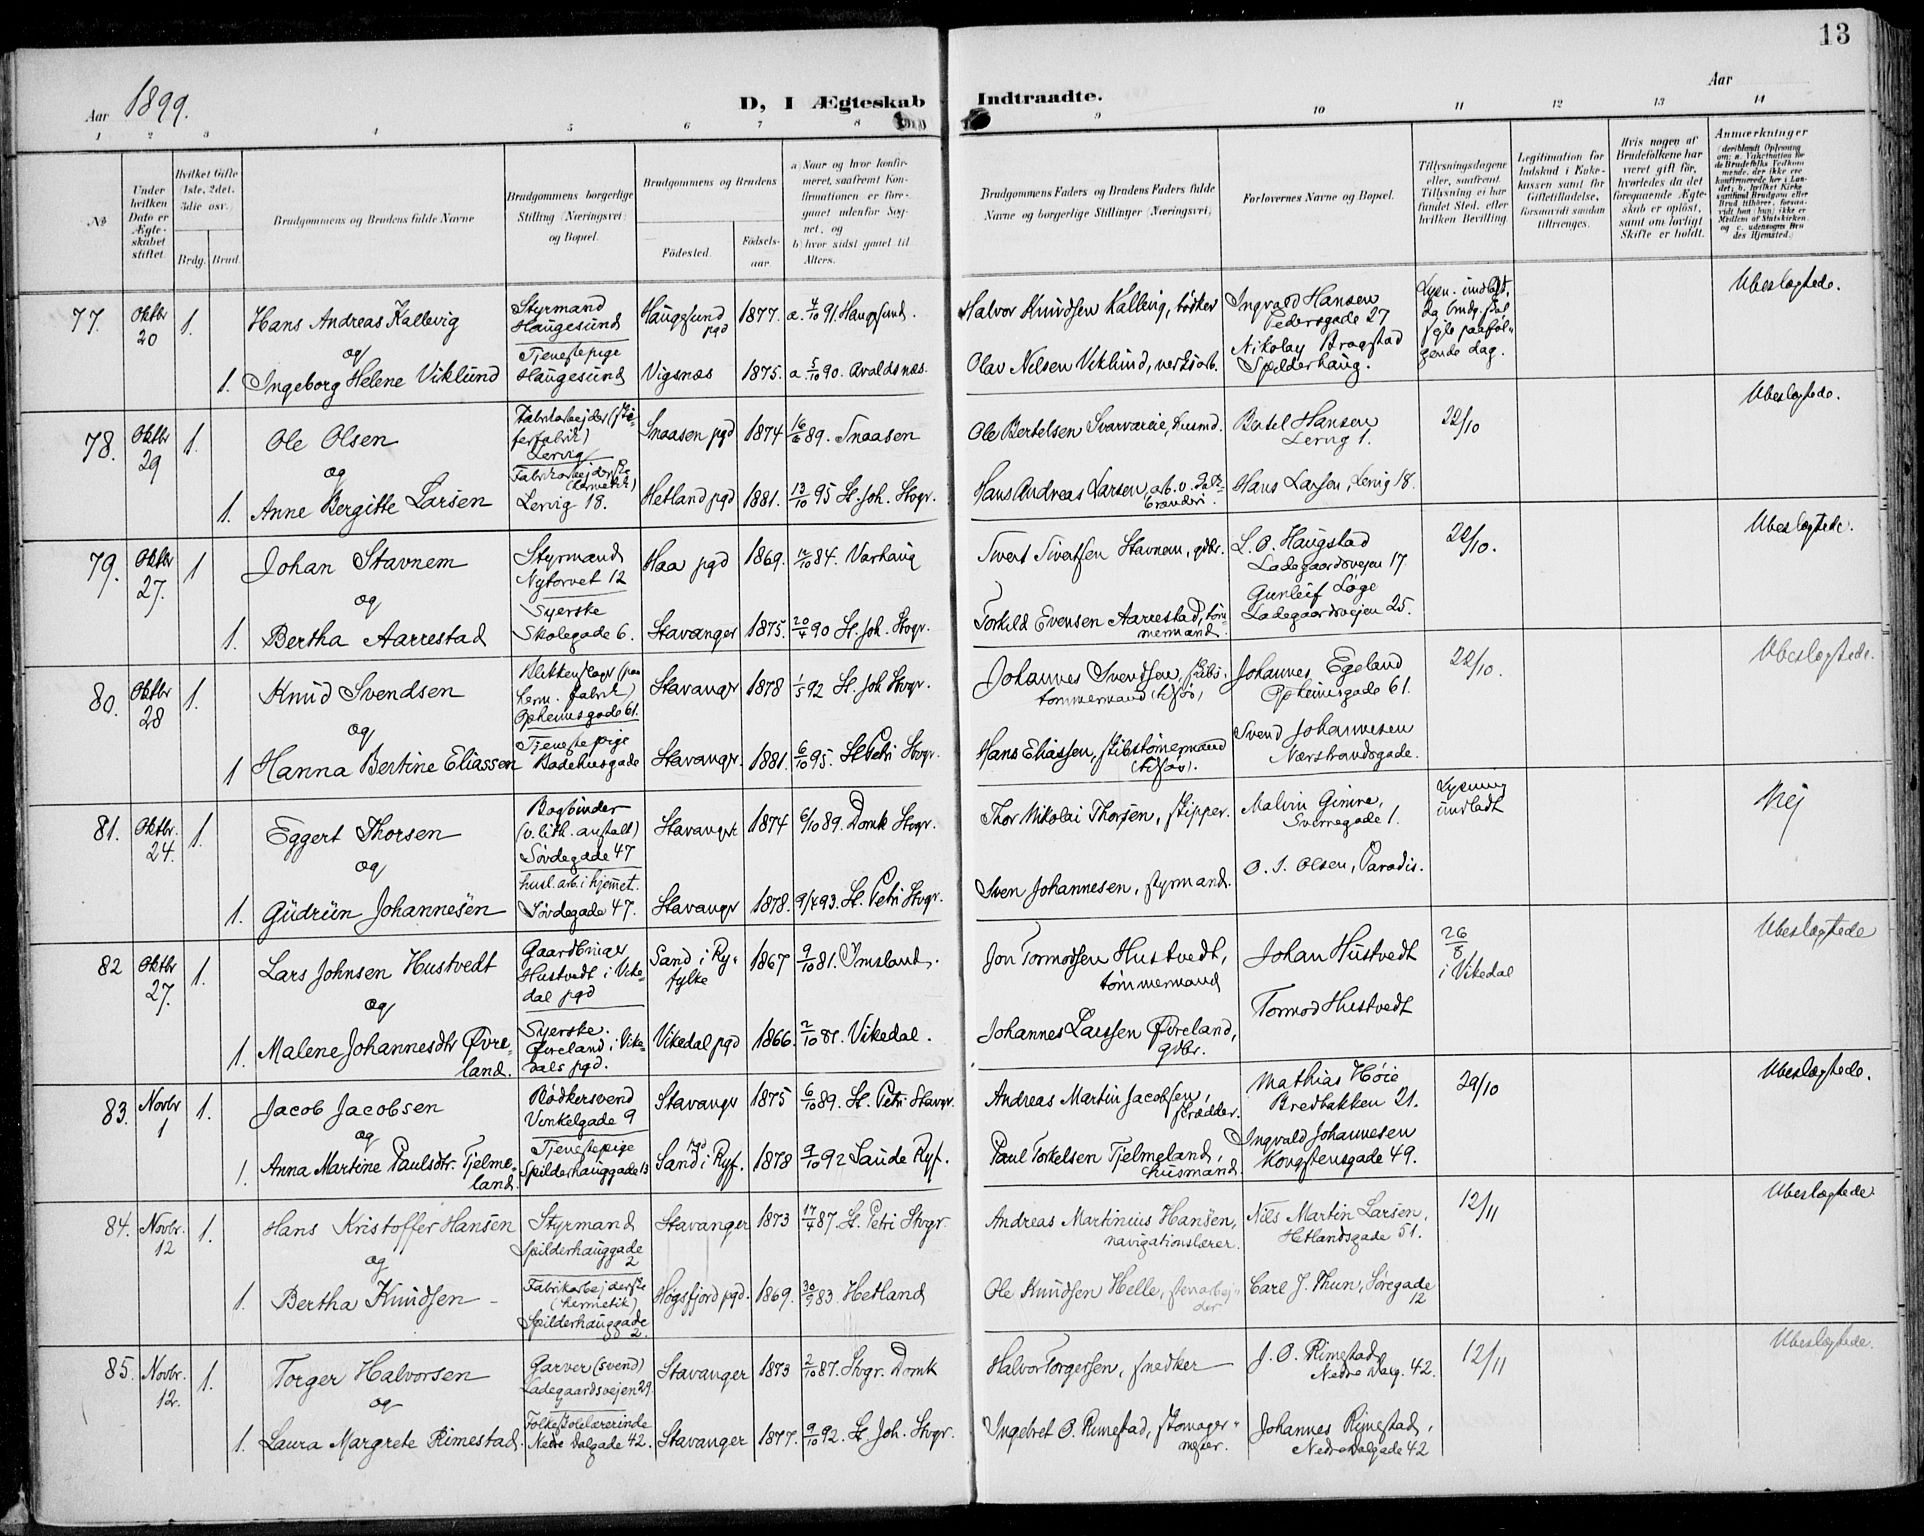 13
Aar 1899.
D, I Ægteskab Indtraadte.
Aar
1 2 3 4 5 6 7 8 9 10 11 12 13 14
No
Under hvilken Dato er Ægteskabet stiftet.
Hvilket Gifte (1ste, 2det, 3die osv.)
Brdg. Brud.
Brudgommens og Brudens fulde Navne
Brudgommens borgerlige Stilling (Næringsvei) og Bopæl.
Brudgommens og Brudens
Fødested. Fødselsaar.
a) Naar og hvor konfirmeret, saafremt Konfirmationen er foregaaet udenfor Sognet, og
b) hvor sidst gaaet til Alters.
Brudgommens Faders og Brudens Faders fulde Navne og borgerlige Stillinger (Næringsvei)
Forlovernes Navne og Bopæl.
Tillysningsdagene eller, saafremt Tillysning ei har fundet Sted, efter hvilken Bevilling.
Legitimation for Indskud i Enkekassen samt for Giftetilladelse, forsaavidt saadan tiltrænges.
Hvis nogen af Brudefolkene har været gift før, hvorledes da det foregaaende Ægteskab er opløst, samt om lovligt Skifte er holdt.
Anmærkninger
77. Oktbr 20 1. Hans Andreas Kallevig Styrmand Haugesund Haugesund pgd 1877. a. 4/10 91. Haugesund. Halvor Knudsen Kallevig, bødker Ingvald Hansen Pedersgade 27 Lysn. indladt, Ubeslægtede.
og
1. Ingeborg Helene Viklund Tjenestepige Haugesund Vigsnæs 1875. a. 5/10 90. Avaldsnæs. Olav Nilsen Viklund, verksarb. Nikolay Bragstad Spilderhaug. gende dag.
78. Oktbr 29 1. Ole Olsen Fabrikarbejder Lervig Snaasen pgd 1874 16/6 89. Snaasen Ole Bertelsen Svarvareie, husmd. Bertel Hansen Lervig 1. 22/10 Ubeslægtede.
og
1. Anne Bergitte Larsen Fabrikarbejderske (hermetik) Lervig 18. Hetland pgd 1881. 13/10 95 St. Joh. Stvgr. Hans Andreas Larsen, Hans Larsen, Lervig 18.
79. Oktbr 27. 1 Johan Stavnem Styrmand Nytorvet 12 Haa pgd 1869. 12/10 84. Varhaug Sivert Sivertsen Stavnem, gdbr. L. O. Haugstad Ladegaardsvejen 17 22/10. Ubeslægtede.
og
1. Bertha Aarrestad Syerske Skolegade 6. Stavanger 1875. 20/4 90 St. Joh. Stvgr. Torkild Evensen Aarrestad, tømmermand. Gunleif Løge Ladegaardsvejen 25.
80. Oktbr 28 1. Knud Svendsen Blikkenslager (paa herm. fabrik) Opheimsgade 61. Stavanger 1878 1/5 92 St. Joh Stvgr. Johannes Svendsen, skibstømmermand (tilsjøs) Johannes Egeland Opheimsgade 61. 22/10. Ubeslægtede.
og
1 Hanna Bertine Eliassen Tjenestepige Badehusgade Stavanger. 1881. 6/10 95. St Petri Stvgr. Hans Eliassen, skibstømermand (tilsjøs). Svend Johannesen Nærstrandsgade.
81. Oktbr. 24. 1. Eggert Thorsen Bogbinder (v. lith. anstalt) Søvdegade 47 Stavanger 1874 6/10 89. Domk Stvgr. Thor Nikolai Thorsen, skipper. Malvin Gimre, Sverresgade 1. Lysning indladt Nej
og
1. Gudrun Johannesen husl. arb. i hjemmet. Søvdegade 47. Stavanger 1878. 9/4 93. St. Petri Stvgr. Sven Johannesen, styrmand. O. S. Olsen, Paradis.
82 Oktbr 27. 1. Lars Johnsen Hustvedt Gaardbruger Hustvedt i Vikedal pgd Sand i Ryfylke 1867 9/10 81. Imsland. Jon Tormodsen Hustvedt, tømmermand Johan Hustvedt 26/8 i Vikedal Ubeslægtede
og
1. Malene Johannesdtr Øvreland. Syerske. Øvreland i Vikedals pgd. Vikedal pgd 1866. 2/10 81. Vikedal. Johannes Larssen Øvreland, gdbr. Tormod Hustvedt
83. Novbr 1 1. Jacob Jacobsen Bødkersvend Vinkelgade 9 Stavanger 1875 6/10 89. St. Petri Stavgr. Andreas Martin Jacobsen, skrædder. Mathias Høie Bredbakken 21. 29/10 Ubeslægtede.
og
1. Anna Martine Paulsdtr. Tjelmeland. Tjenestepige Spilderhauggade 13 Sand pgd i Ryf. 1878 9/10 92 Saude Ryf. Paul Torkelsen Tjelmeland, husmand. Ingvald Johannesen Kongstensgade 49.
84. Novbr. 12 1. Hans Kristoffer Hansen Styrmand Spilderhauggade 2 Stavanger 1873 17/4 87. St. Petri Stvgr. Andreas Martinius Hansen, navigationslærer. Nils Martin Larsen, Hetlandsgade 51. 12/11 Ubeslægtede
og
1. Bertha Knudsen Fabrikarbejderske (hermetik) Spilderhauggade 2. Høgsfjord pgd. 1869. 30/9 83. Hetland Ole Knudsen Helle, stenarbejder Carl J. Thun, Søregade 12
85. Novbr. 12. 1. Torger Halvorsen Garver (svend) Ladegaardsvejen 29. Stavanger 1873 2/10 87. Stvgr. Domk Halvor Torgersen, snedker J. O. Rimestad Nedre Dalg. 42. 12/11 Ubeslægtede.
og
1. Laura Margrete Rimestad. Folkeskolelærerinde Nedre Dalgade 42. Stavanger 1877. 9/10 92. St. Joh. Stvgr. Ingebret O. Rimestad, skomagermester. Johannes Rimestad, Nedre Dalgade 42